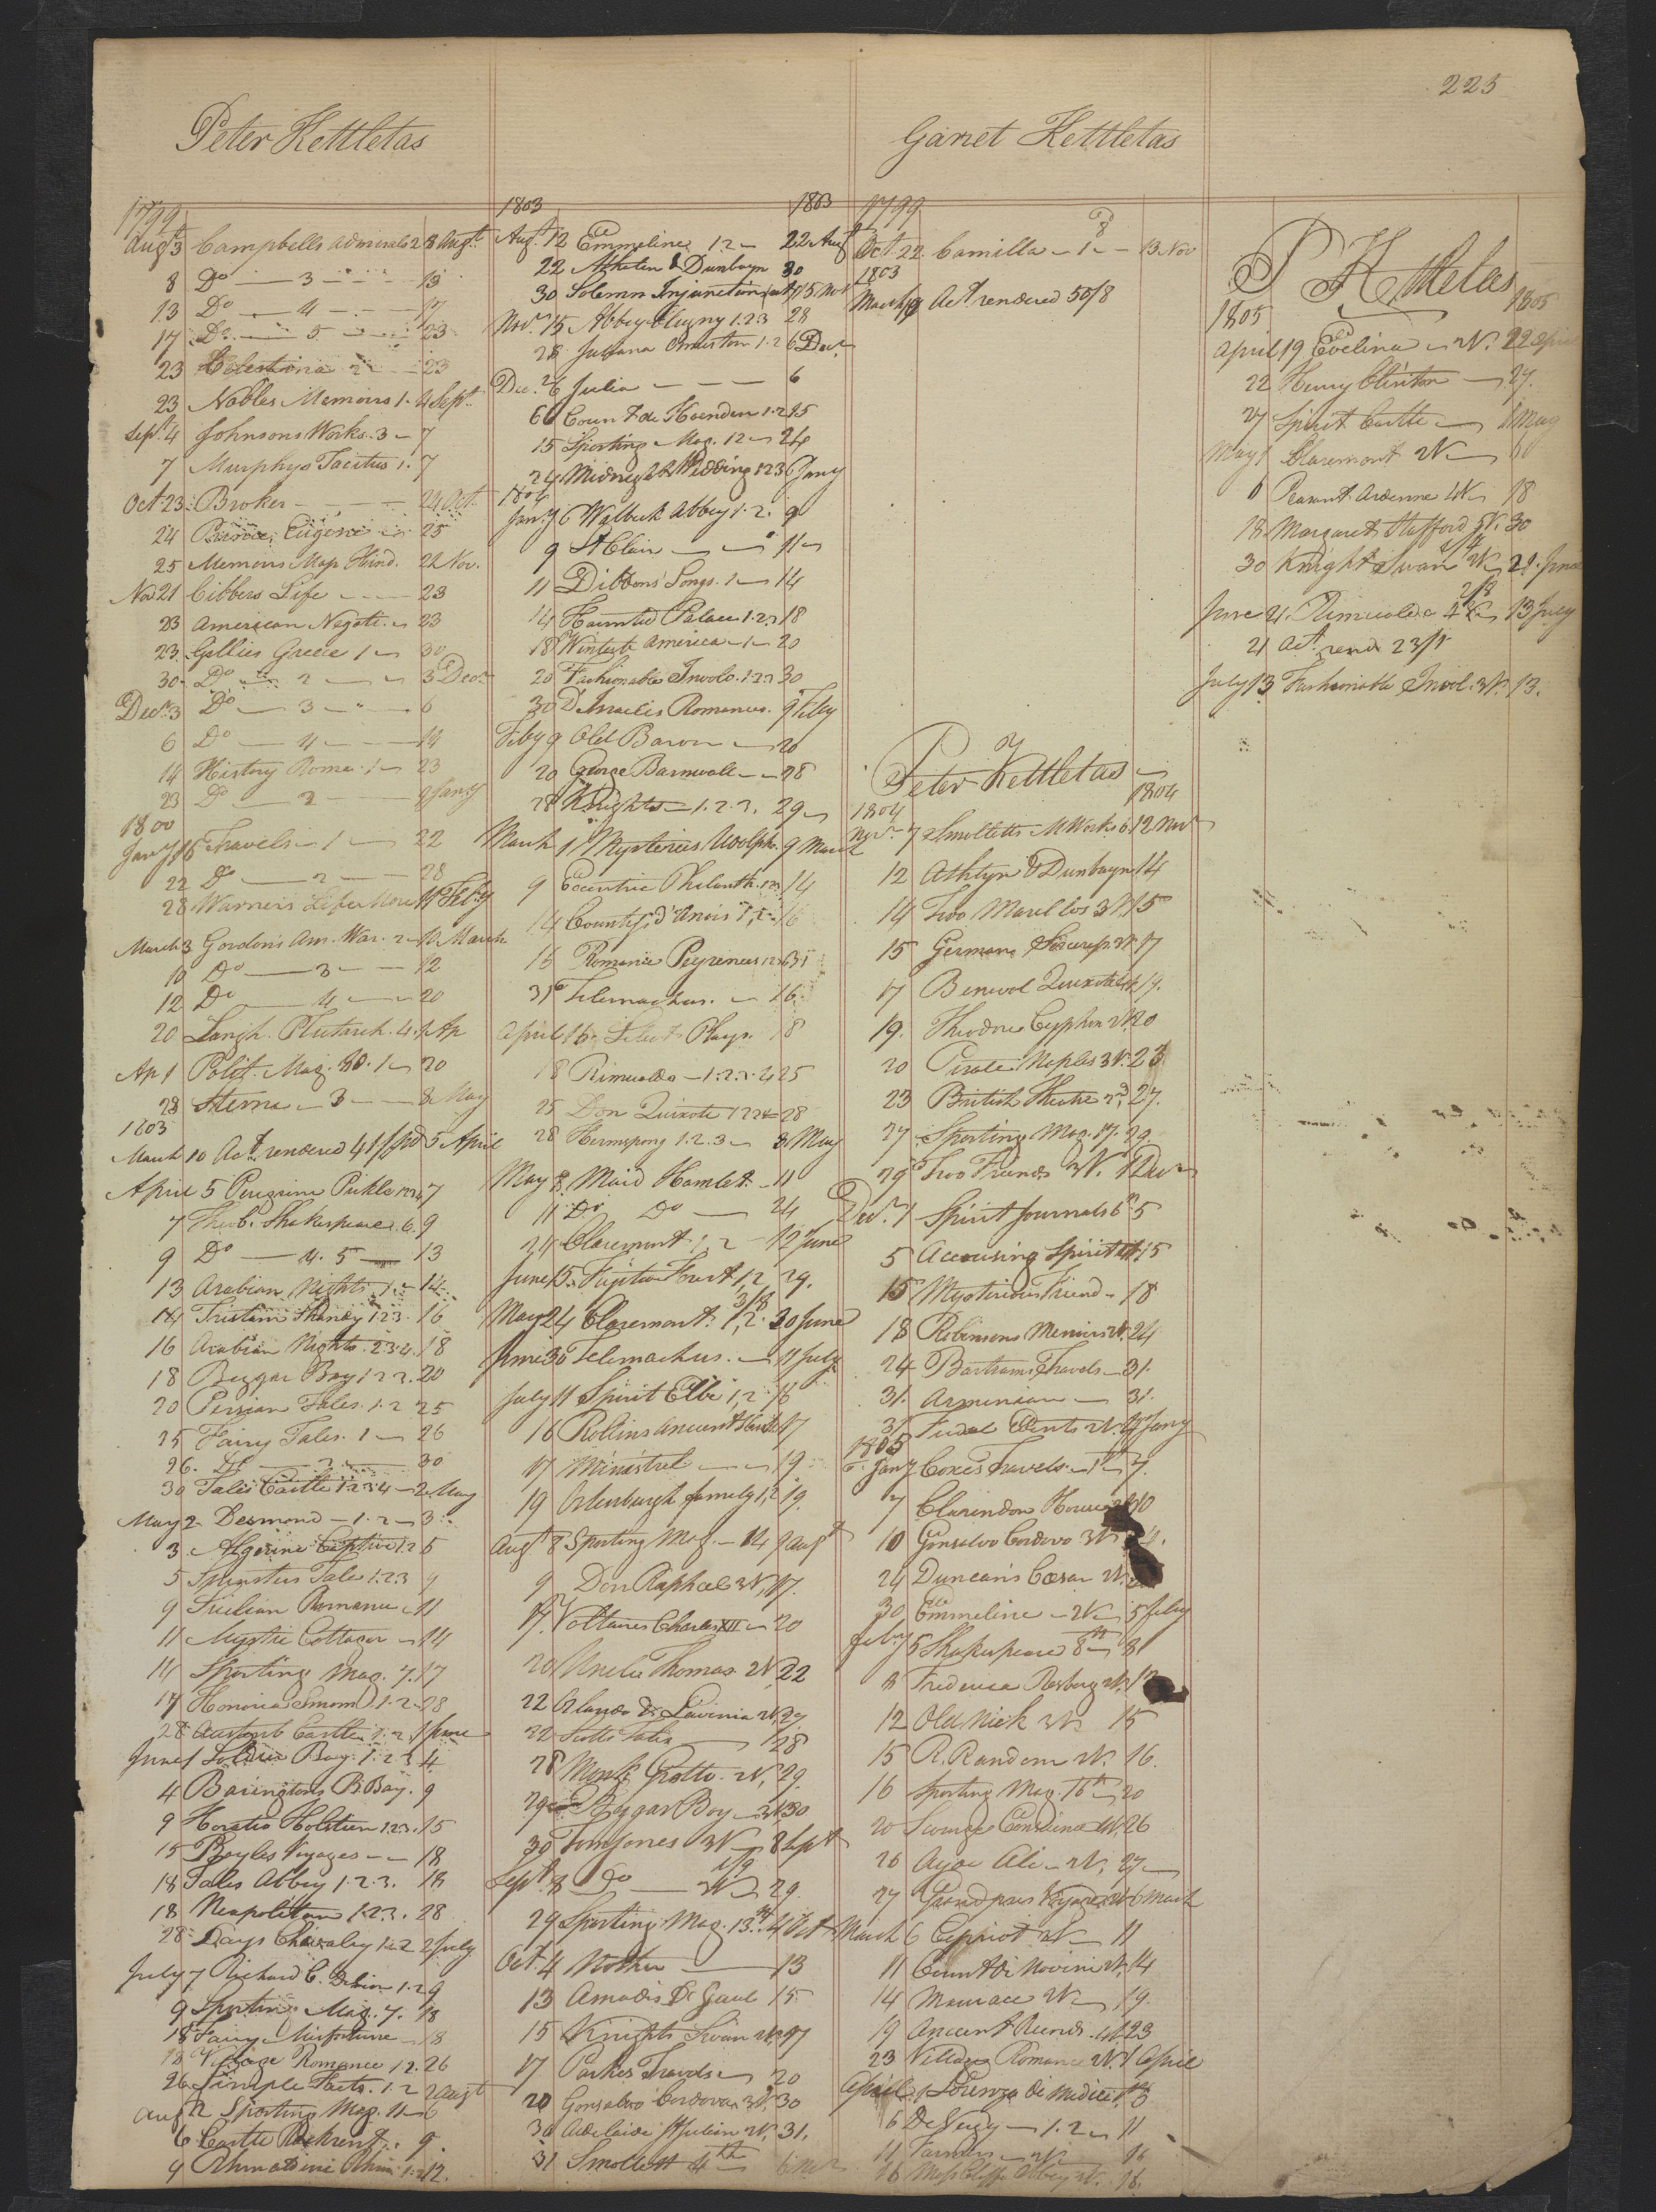 225
Peter Kettletas
1799
Augt 3 Campbells Admirals 2 8 Augt
8 Do 3 13
13 Do 4 17
17 Do 5 23
23 Celestina 2 23
23 Nobles Memoirs 1. 4 Sept
Sept 4 Johnsons Works. 3 7
7 Murphys Tacitus 1. 7
Oct 23 Broker 24 Oct
24 Eugene 25
25 Memoirs Map Hind. 22 Nov.
Nov 21 Cibbers Life 23
23 American Negoti. 23
23 Gillies Greece 1 30
30 Do 2 3 Decr
Decr 3 Do 3 6
6 Do 4 14
14 History Rome 1 23
23 Do 2 Jany
1800
Jany 16 Travels 1 22
22 Do 2 28
28 Warners Life 11 Feby
March 3 Gordons Am. War. 2 10 March
10 Do 3 12
12 Do 4 20
20 Langh. Plutarch. 4. 1 Ap
Ap 1 Polit. Mag. 1 20
28 Sterne 3 8 May
1803
March 10 Act rendered 41/ pd 5 April
April 5 Peregrine Pickle 1234 7
7 Theob. Shakespeare. 6. 9
9 Do 4. 5 13
13 Arabian Nights. 1 14
14 Tristam Shandy 1.2.3. 16
16 Arabian Nights. 2.3.4. 18
18 Beggar Boy 1.2.3. 20
20 Persian Tales. 1.2 25
25 Fairy Tales. 1 26
26. Do 2 30
30 Tales Castle 1.2.3.4 2 May
May 2 Desmond 1. 2 3
3 Algerine Captive 1.2 5
5 Spinsters Tale 1.2.3 9
9 Sicilian Romance 11
11 Mystic Cottager 14
14 Sporting Mag. 7. 17
17 Honoria 1.2 28
28 Castle 1. 2. 1 June
June 1 Soldier Boy. 1. 2. 3 4
4 Baringtons B. Bay. 9
9 Horatio Holstein 1.2.3. 15
15 Boyles Voyages 18
18 Tales Abbey 1.2.3. 18
18 Neapolitan 1.2.3. 28
28 Days Chivalry 1.2.2 2 July
July 7 Richard C. 1.2 9
9 Sporting Mag. 7. 18
18 Fairy 18
18 Village Romance 1.2. 26
26 Simple Facts. 1. 2 2 Augt
Aug 2 Sporting Mag. 11 6
6 Castle Rackrent. 9.
9 1.2 12.
1803 1803
Augt 12 Emmeline 1 2 22 Augt
22 Athelen & Dunbayn 30
30 Solemn Injunction 15 Nov
Novr 15 Abbey Clugny 1.2.3 28
28 Juliana Ormeston 1. 2 6 Decr
Decr 6 Julia 6
6 Count de Hoensdern 1.2 15
15 Sporting Mag. 12 24
24 Midnight Wedding 1 2 3 Jany
1804
Jany 6 Walbeck Abbey 1. 2. 9
9 St Clair 11
11 Dibdens Songs. 1 14
14 Haunted Palace 1.2.3 18
18 Winterb America 1 20
20 Fashionable Involv. 1.2.3 30
30 D'Israelis Romances. 9 Feby
Feby 9 Old Baron 20
20 George Barnwell 28
28 Knights 1. 2. 3. 29
March 1 Mysteries Udolph. 9 March
9 Eccentric Philanth. 1.2.3 14
14 1, 2 16
16 Romance Pyrenees 31
31 Telemachus. 16
April 16 Select Plays. 18
18 Rimualdo 1. 2. 3. 4 25
25 Don Quixote 1 2 3 4 28
28 Hermsprong 1. 2. 3 8 May
May 8. Maid Hamlet. 11
11 Do Do 24
24 Claremont 1, 2 12 June
June 15. Fugitive Forest 1,2 29.
3/8
May 24 Claremont. 1, 2. 20 June
June 30 Telemachus. 11 July
July 11 Spirit Elbe 1, 2 16
16 Rollins Ancient Hist. 17
17 Minstrel 19
19 Ortenburgh family 1, 2 19.
Augt 8 Sporting Mag. 14 9 Augt
9 Don Raphael 3 V. 17.
17. Voltaires Charles XII 20
20 Uncle Thomas. 2 V. 22
22 Orlando & Lavinia 2 V. 27
22 Scotts Tales 28
28 Monk Grotto. 2 V. 29.
29 Beggar Boy 3 V. 30
30 Tom Jones 3 V 8 Sept
Sept. 8 Do 3 V 29
29 Sporting Mag. 13th 4 Oct
Oct. 4 Mother 13
13 Amadis de Gaul 15
15 Knights Swan 2 V. 17
17 Parkes Travels 20
20 Gonsalvo Cordova 3 V. 30
30 Adelaide St Julien 2 V. 31.
31 Smollett 4th 6 Novr
Garret Kettletas
1799
Oct. 22. Camilla 1 13 Nov
1803
March 9 Act rendered 50/8
Peter Kettletas
1804 1804
Novr 7 Smolletts M Works 6. 12 Novr
12 Athlyn & Dunbayn 14
14 Two Marillos 3 V. 15
15 German 17
17 Benevol Quixote 19.
19. Theodore Cyphon 2 V. 20
20 Pirate Naples 3 V. 23
23 British Theatre 2d, 27.
27 Sporting Mag. 17. 29.
29 Two Friends 3 V. 1 Decr
Decr. 1 Spirit Journals 6th 5
5 Accusing Spirit 4 V. 15
15 Mysterious Friend 18
18 Robinsons Memoirs 2 V. 24
24 Bartrams Travels 31.
31. Armenian 31.
31 Feudal Events 2 V. Jany
1805
Jany Coxes Travels 1st 7.
7 Clarendon House 10
10 Gonsalvo Cordova 3 V.
24 Duncans Cæsar 2 V.
30 Emmeline 2 V 5 Feby
Feby 5 Shakespeare 8th 8
8 Frederica Risberg 2 V. 12
12 Old Nick 3 V 15
15 R. Random 2 V. 16.
16 Sporting Mag. 16th 20
20 Scourge Conscience 4 V. 26
26 Ayar Ali 2 V. 27
27 Grandpres Voyages 2 V 6 March
March 6 Cypriot 2 V 11
11 Count di Novini 2 V. 14
14 Mauiace 2 V 19.
19 Ancient Records. 4 V. 23
23 Village Romance 2 V. 1 April
April 1 Lorenzo di Medici 6
6 De Vergy 1. 2 11
11 Farmers 2 V 16
16 Moss Cliff Abbey 2 V. 18.
P Kettletas
1805 1805
April 19 Evelina 2 V. 22 April
22 Henry Clinton 27.
27 Spirit Castle 1 May
May 1 Claremont 2 V 6
6 Peasant Ardenne 4 V 18
18 Margaret Stafford 2 V. 30
30 Knight Swan 2 V 21 June
June 21. Rimualdo 4 V 13 July
21 Act rend 23/1
July 13 Fashionable Invol. 3 V. 13.